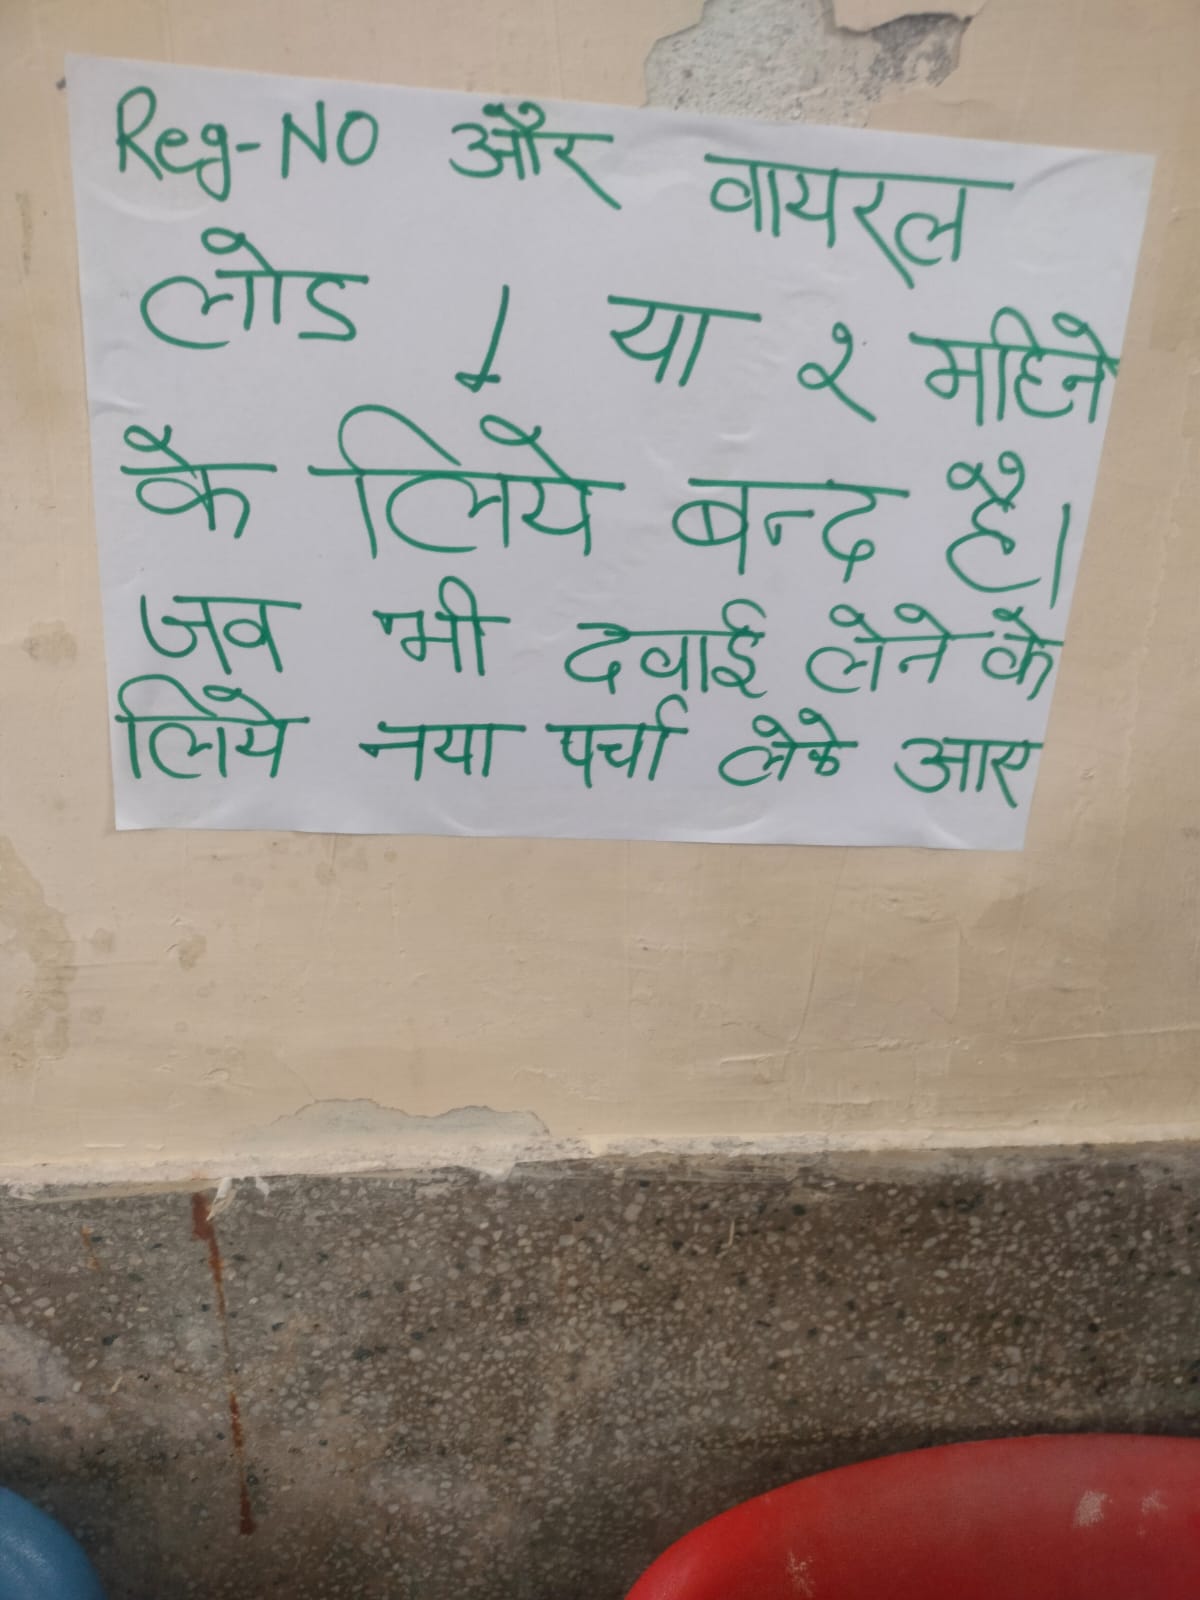 Reg-NO और वायरल
लोड 1 या २ महिने
के लिये बन्द है।
जव भी दवाई लेने के
लिये नया पर्चा लेके आए